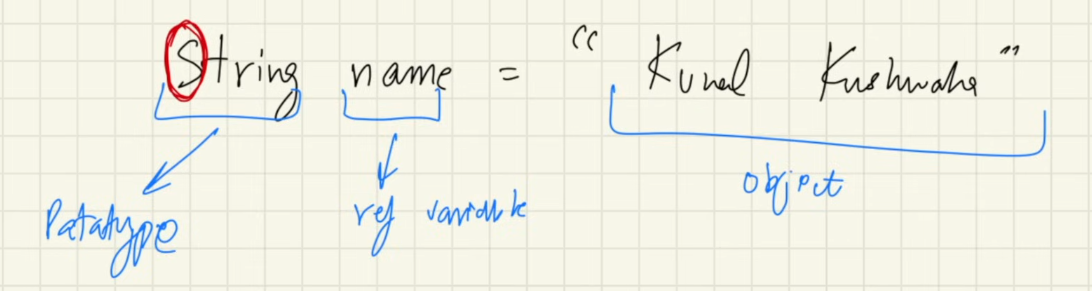 String name = " Kunal Kushwaha "
Datatype ref variable object